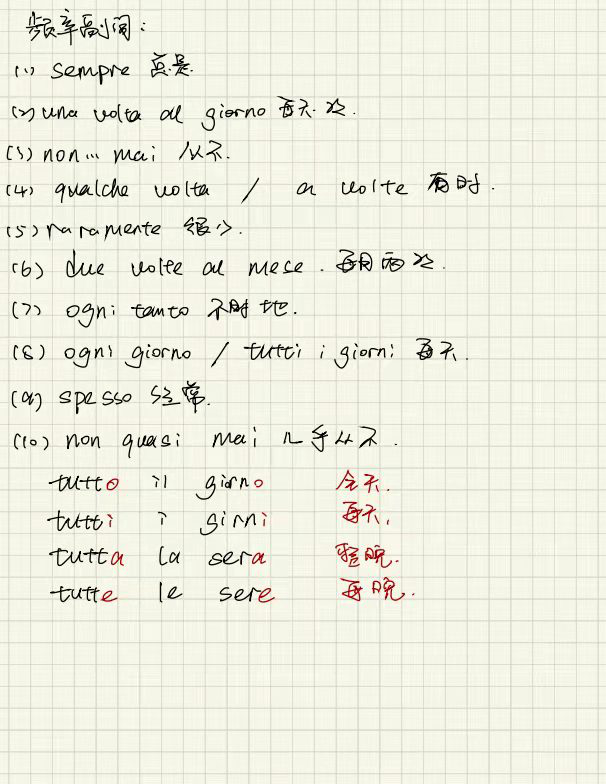 频率副词:
(1) sempre 总是.
(2) una volta al giorno 每天一次.
(3) non... mai 从不.
(4) qualche volta / a volte 有时.
(5) raramente 很少.
(6) due volte al mese. 每月两次.
(7) ogni tanto 不时地.
(8) ogni giorno / tutti i giorni 每天.
(9) spesso 经常.
(10) non quasi mai 几乎从不.
tutto il giorno 全天.
tutti i girni 每天.
tutta la sera 整晚.
tutte le sere 每晚.